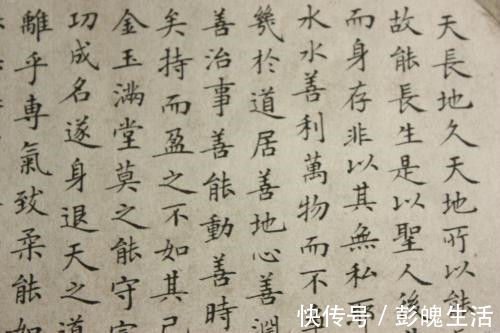 天長地久天地所以能
故能長生是以聖人後
而身存非以其無私
水水善利萬物而不
幾於道居善地心善淵
善治事善能動善時
矣持而盈之不如其己
金玉滿堂莫之能守
功成名遂身退天之道
離乎專氣致柔能如
快传号 / 彭魄生活